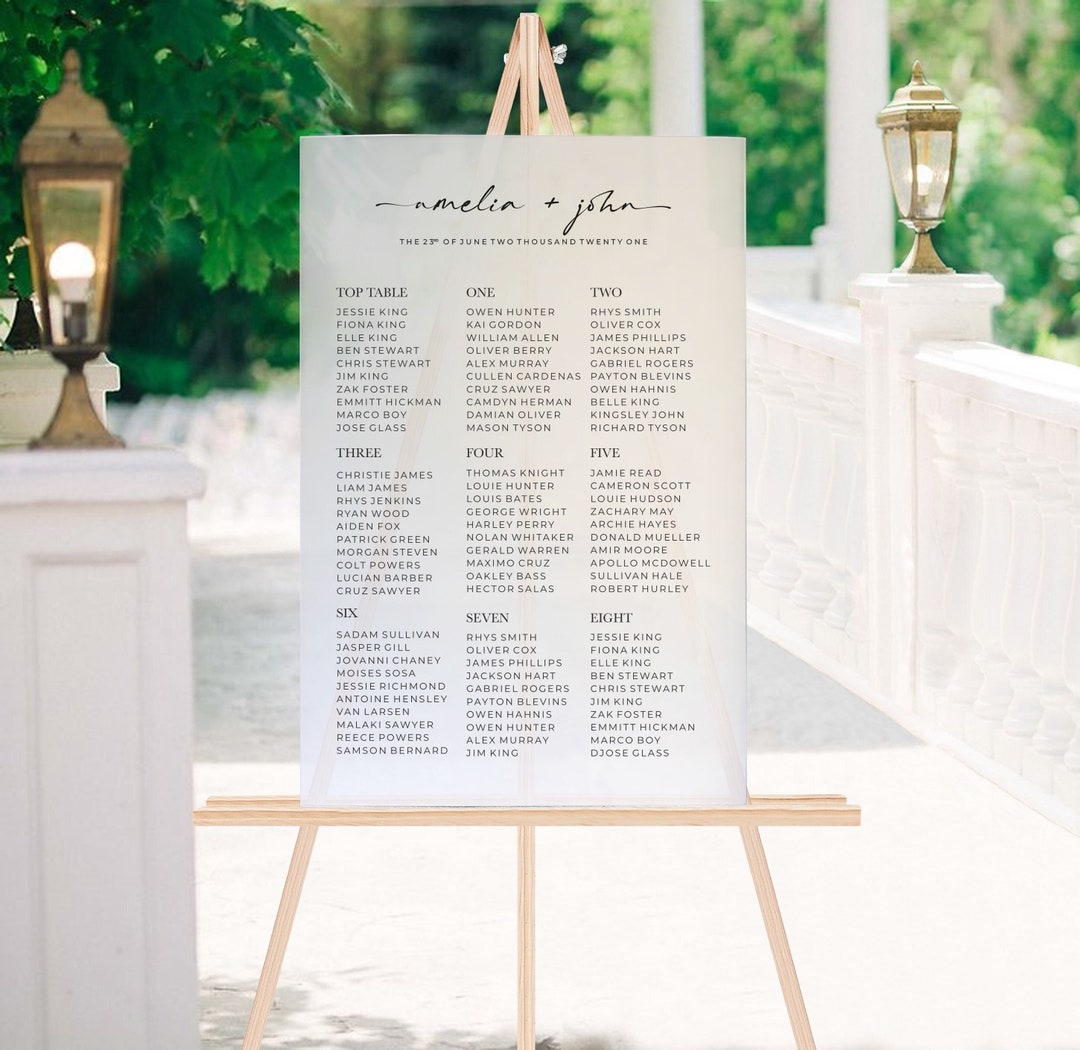 amelia + john
THE 23RD OF JUNE TWO THOUSAND TWENTY ONE
TOP TABLE
JESSIE KING
FIONA KING
ELLE KING
BEN STEWART
CHRIS STEWART
JIM KING
ZAK FOSTER
EMMITT HICKMAN
MARCO BOY
JOSE GLASS
ONE
OWEN HUNTER
KAI GORDON
WILLIAM ALLEN
OLIVER BERRY
ALEX MURRAY
CULLEN CARDENAS
CRUZ SAWYER
CAMDYN HERMAN
DAMIAN OLIVER
MASON TYSON
TWO
RHYS SMITH
OLIVER COX
JAMES PHILLIPS
JACKSON HART
GABRIEL ROGERS
PAYTON BLEVINS
OWEN HAHNIS
BELLE KING
KINGSLEY JOHN
RICHARD TYSON
THREE
CHRISTIE JAMES
LIAM JAMES
RHYS JENKINS
RYAN WOOD
AIDEN FOX
PATRICK GREEN
MORGAN STEVEN
COLT POWERS
LUCIAN BARBER
CRUZ SAWYER
FOUR
THOMAS KNIGHT
LOUIE HUNTER
LOUIS BATES
GEORGE WRIGHT
HARLEY PERRY
NOLAN WHITAKER
GERALD WARREN
MAXIMO CRUZ
OAKLEY BASS
HECTOR SALAS
FIVE
JAMIE READ
CAMERON SCOTT
LOUIE HUDSON
ZACHARY MAY
ARCHIE HAYES
DONALD MUELLER
AMIR MOORE
APOLLO MCDOWELL
SULLIVAN HALE
ROBERT HURLEY
SIX
SADAM SULLIVAN
JASPER GILL
JOVANNI CHANEY
MOISES SOSA
JESSIE RICHMOND
ANTOINE HENSLEY
VAN LARSEN
MALAKI SAWYER
REECE POWERS
SAMSON BERNARD
SEVEN
RHYS SMITH
OLIVER COX
JAMES PHILLIPS
JACKSON HART
GABRIEL ROGERS
PAYTON BLEVINS
OWEN HAHNIS
OWEN HUNTER
ALEX MURRAY
JIM KING
EIGHT
JESSIE KING
FIONA KING
ELLE KING
BEN STEWART
CHRIS STEWART
JIM KING
ZAK FOSTER
EMMITT HICKMAN
MARCO BOY
DJOSE GLASS